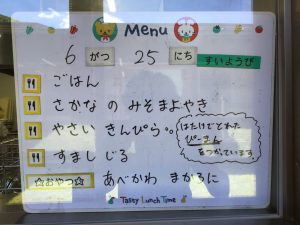 Menu
6 がつ 25 にち すいようび
ごはん
さかな の みそまよやき
やさい きんぴら
はたけでとれた
ぴーまん
をつかっています
すましじる
☆おやつ☆ あべかわ まかろに
Tasty Lunch Time